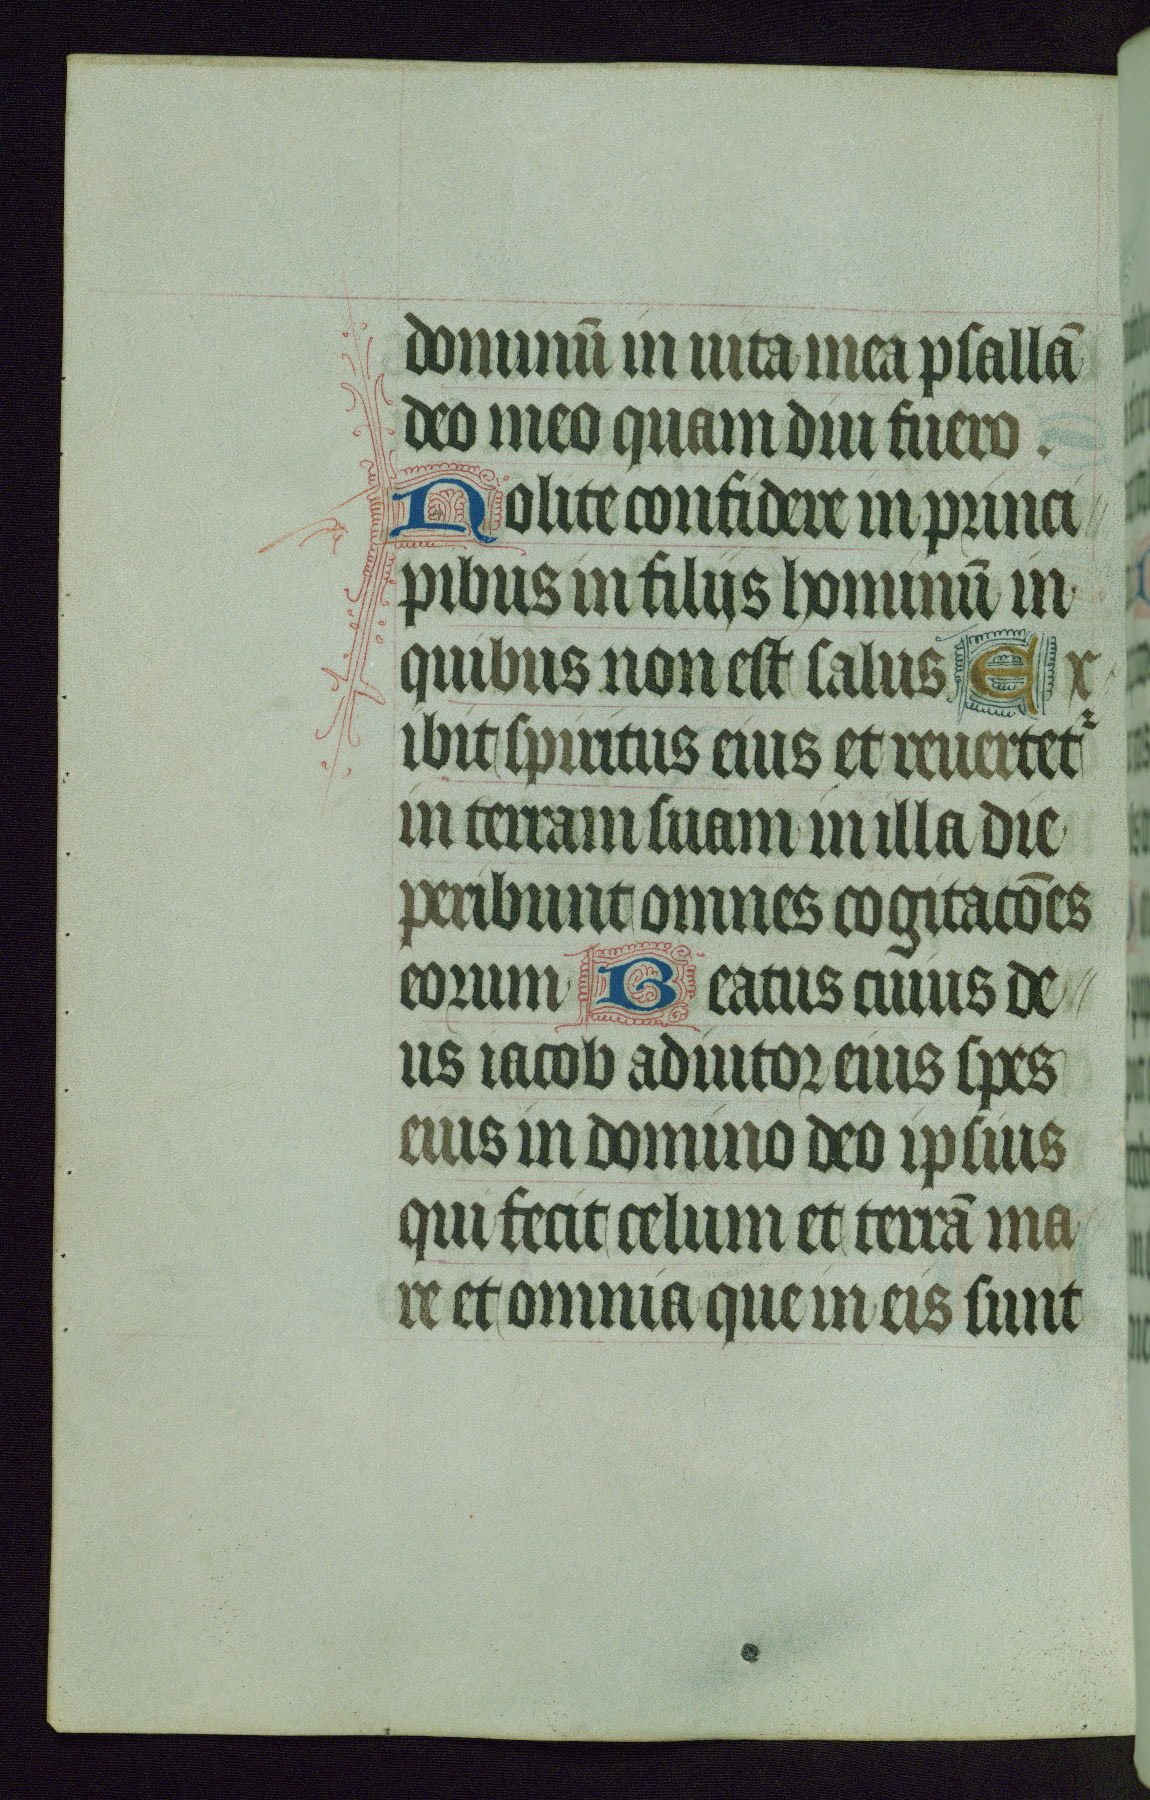 dominū in uita mea psallā
deo meo quam diu fuero .
Nolite confidere in princi
pibus in filijs hominū in
quibus non est salus Ex
ibit spiritus eius et reuertetᷣ
in terram suam in illa die
peribunt omnes cogitacōes
eorum Beatus cuius de
us iacob adiutor eius spes
eius in domino deo ipsius
qui fecit celum et terrā ma
re et omnia que in eis sunt